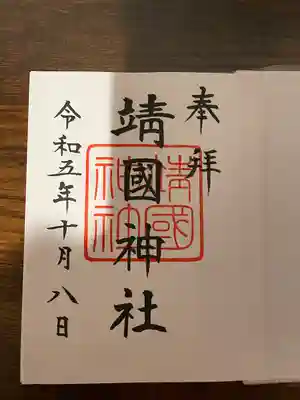 奉拝
靖國神社
靖國
神社
令和五年十月八日